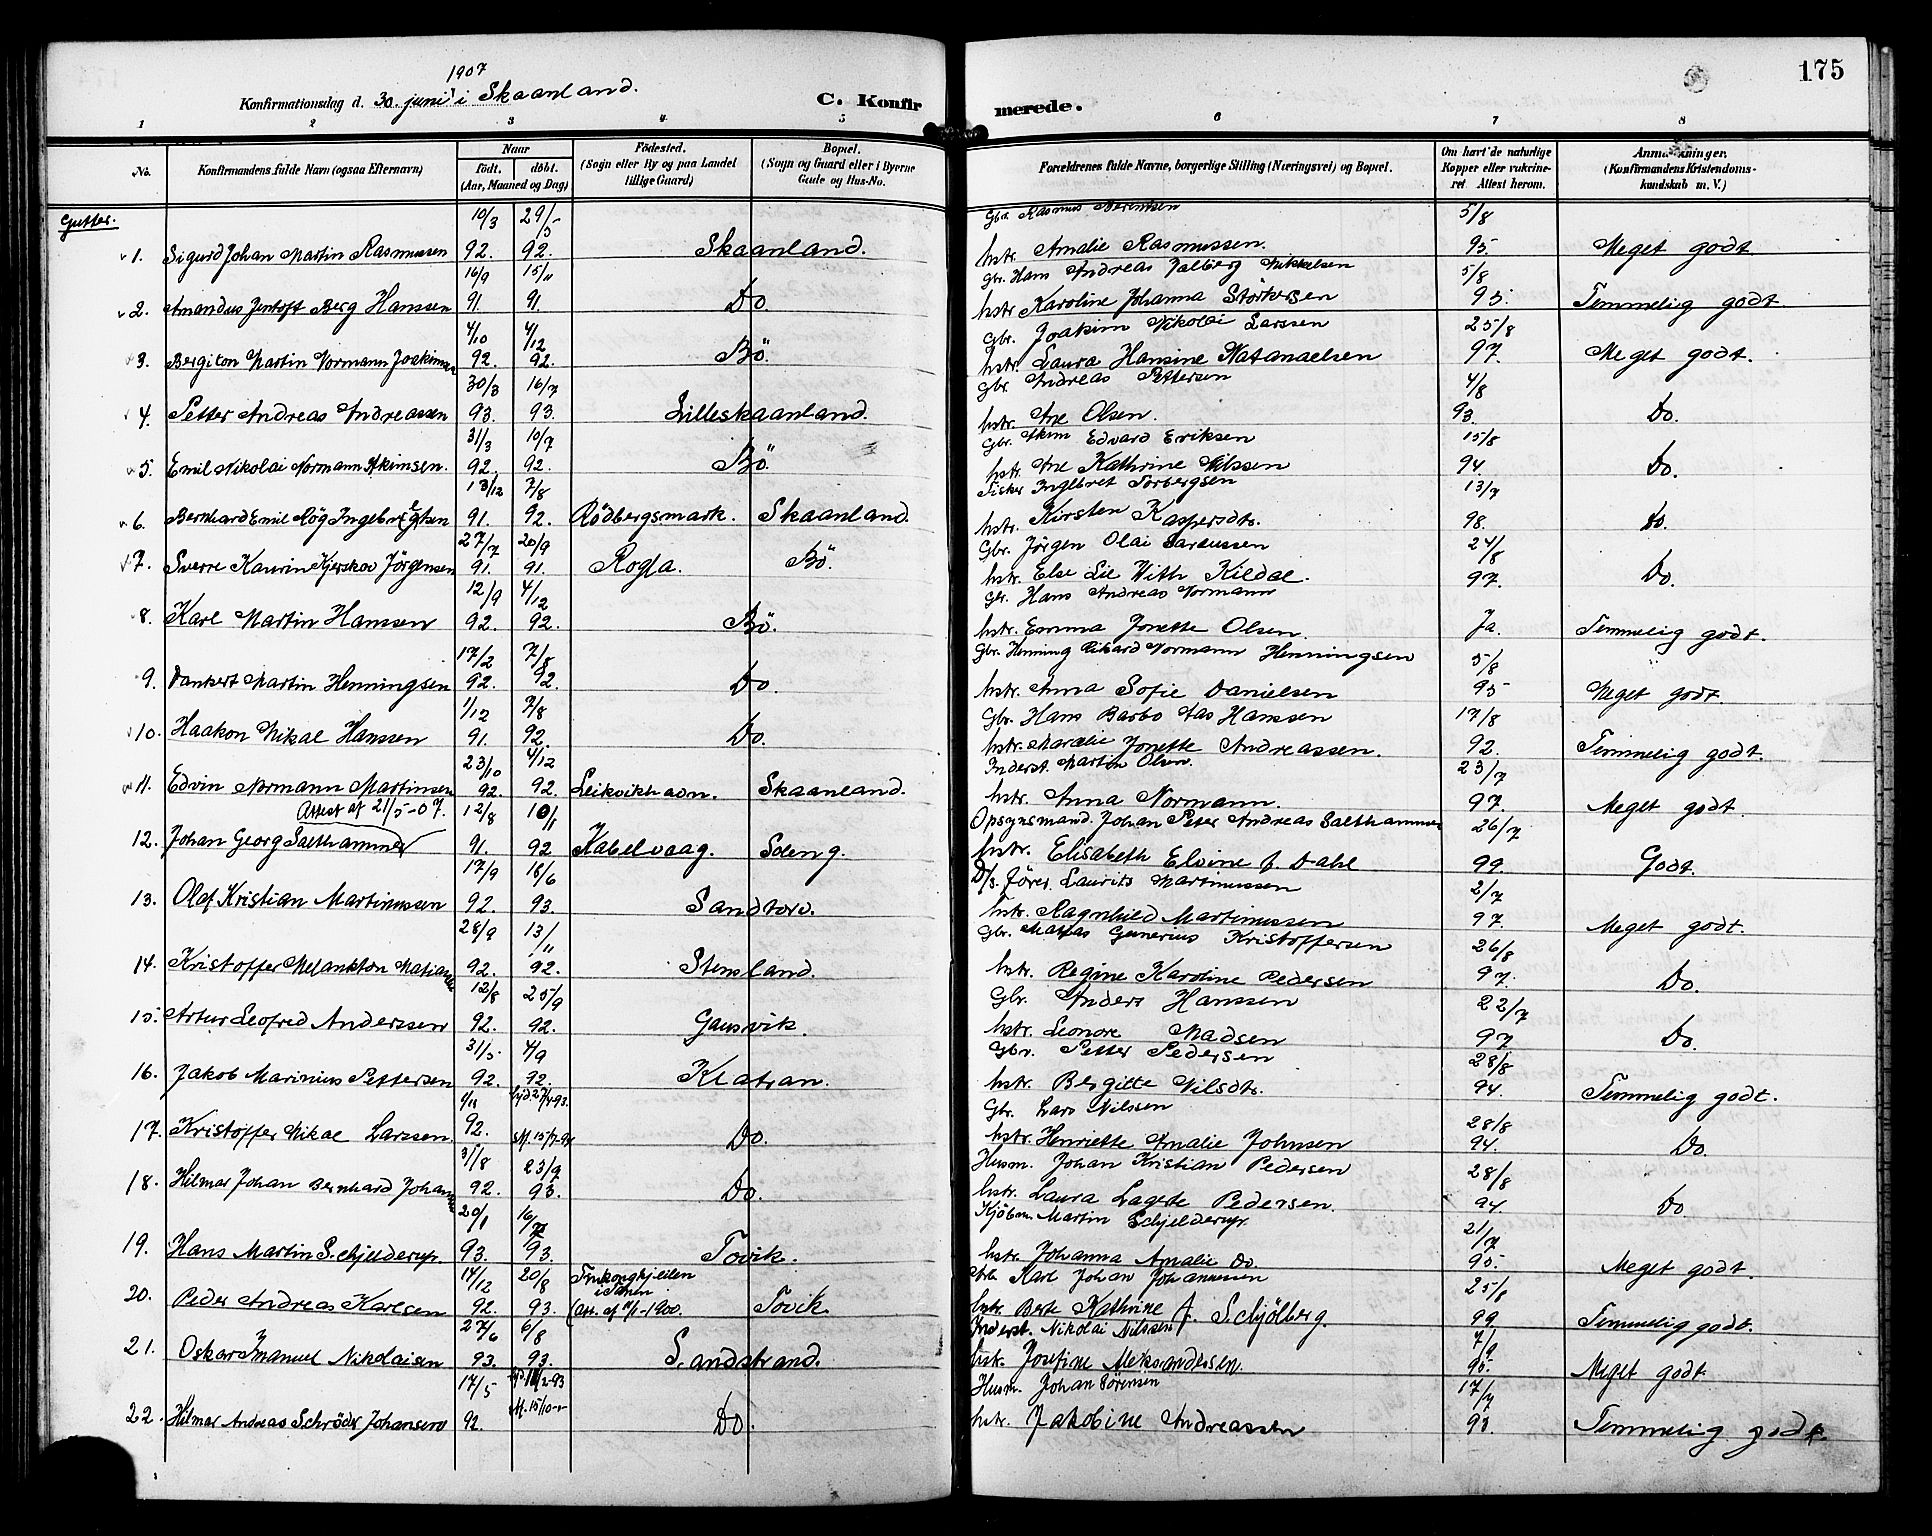 1907
Konfirmationsdag d. 30. juni i Skaanland.
C. Konfirmerede.
175
1 2 3 4 5 6 7 8
No.
Konfirmandens fulde Navn (ogsaa Efternavn)
Naar
födt. döbt.
(Aar, Maaned og Dag)
Födested.
(Sogn eller By og paa Landet tillige Gaard)
Bopæl.
(Sogn og Gaard eller i Byerne Gade og Hus-No.
Forældrenes fulde Navne, borgerlige Stilling (Næringsvei) og Bopæl.
Om havt de naturlige Kopper eller vakcineret. Attest herom.
(Konfirmandens Kristendomskundskab m. V.)
Gutter.
10/3 29/5 Gbr. Rasmus Berentsen 5/8
1. Sigurd Johan Martin Rasmussen 92. 92. Skaanland. hstr. Amalie Rasmussen. 95. Meget godt.
16/9 15/11 Gbr. Hans Andreas Jalberg Mikkelsen 5/8
2. Amandus Jentoft Berg Hanssen 91. 91. Do. hstr Karoline Johanna Störkersen 95. Temmelig godt
4/10 4/12 Gbr. Joakim Nikolai Larssen 25/8
3. Bergiton Martin Normann Joakimsen 92. 92. Bö. hstr. Laura Hansine Natanaelsen 97. Meget godt.
30/3 16/7 Gbr Andreas Pettersen 4/8
4. Petter Andreas Andreassen 93. 93. Lilleskaanland. hstr. Ane Olsen. 93. Do.
31/3 10/7 Gbr. Akim Edvard Eriksen 15/8
5. Emil Nikolai Normann Akimsen. 92. 92. Bö. hstr. Ane Kathrine Nilssen 94. Do.
13/12 7/8 Fisker Ingebret Torbergsen 13/7
6. Bernhard Emil Hög Ingebrigtsen 91. 92. Rödbergsmark. Skaanland. hstr. Kirsten Kaspersdtr. 98. Do.
27/7 20/9 Gbr. Jörgen Olai 24/8
7. Sverre Kaurin Kjerskov Jörgensen 91. 91. Rogla. Bö. hstr. Else Lie With Kildal. 97. Do.
12/9 4/12 Gbr. Hans Andreas Normann
8. Karl Martin Hanssen 92. 92. Bö. hstr. Emma Jonette Olsen. Ja. Temmelig godt.
17/2 7/8 Gbr. Henning Rikard Normann Henningsen 5/8
9. Dankert Martin Henningsen 92. 92. Do. hstr. Anna Sofie Danielsen 95 Meget godt.
1/12 7/8 Gbr. Hans Barbo Aas Hanssen 17/8
10. Haakon Mikal Hanssen 91. 92. Do. hstr. Maralie Jonette Andreassen. 92. Temmelig godt.
23/10 4/12 Inderst. Martin Olsen. 23/7
11. Edvin Normann Martinsen 92. 92. Leikvikhavn. Skaanland. hstr. Anna Normann. 97. Meget godt.
Attest af 21/5-07. 12/8 10/1 Opsynsmand. Johan Peter Andreas Salthammer 26/7
12. Johan Georg Salthammer 91. 92 Kabelvaag. Soleng. hstr. Elisabeth Elvine f. Dahl 99. Godt.
17/9 18/6 D/s. förer. Laurits Martinussen 2/7
13. Olaf Kristian Martinussen 92. 93. Sandtorv. hstr. Ragnhild Martinussen 97. Meget godt.
28/9 13/11 Gbr. Matias Gunerius Kristoffersen 26/8
14. Kristoffer Melankton Matiassen 92. 92. Stensland. hstr. Regine Karoline Pedersen 97. Do.
12/8 25/9 Gbr. Anders Hanssen 22/7
15. Artur Leofred Anderssen 92. 92. Gausvik. hstr. Leonore Madsen 97 Do.
31/5 4/9 Gbr. Petter Pedersen 28/8
16. Jakob Marinius Pettersen 92. 92. Klatran. hstr. Bergitte Nilsdtr. 94. Temmelig godt.
1/11 Gbr. Lars Nilssen 28/8
17. Kristoffer Mikal Larssen. 92. Do. hstr. Henriette Amalie Johnsen 94. Do.
31/8 23/9 Husm. Johan Kristian Pedersen 28/8
18. Hilmar Johan Bernhard Johansen 92. 93. Do. hstr. Laura Lagerte Pedersen. 94. Do
20/1 16/7 Kjöbm. Martin Schjelderup. 21/7
19. Hans Martin Schjelderup. 93. 93. Tovik. hstr. Johanna Amalie Do. 95. Meget godt.
14/12 20/8 i Tanen Karl Johan Johannesen 25/8
20. Peder Andreas Karlsen 92. 93. (att. af 11/1-1900. Tovik. hstr. Berte Kathrine f. Schjölberg. 99. Temmelig godt.
27/6 6/8 Inderst. Nikolai Nilssen 7/9
21. Oskar Imanuel Nikolaisen 93. 93. Sandstrand. hstr. Josefine Aleksandersen. 95. Meget godt.
17/5 Husm. Johan Sörensen 17/7
22. Hilmar Andreas Schröder Johansen 92. Do. hstr. Jakobine Andreassen 93. Temmelig godt.